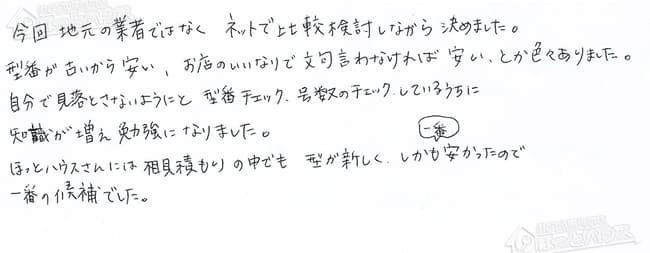 今回 地元の業者ではなく ネットで比較検討しながら 決めました。
型番が古いから安い、お店のいいなりで文句言わなければ 安い、とか色々ありました。
自分で見落とさないようにと 型番チェック、号数のチェック、しているうちに
知識が増え勉強になりました。
一番
ほっとハウスさんには 相見積もりの中でも 型が新しく、しかも安かったので
一番の候補でした。
ほっとハウス